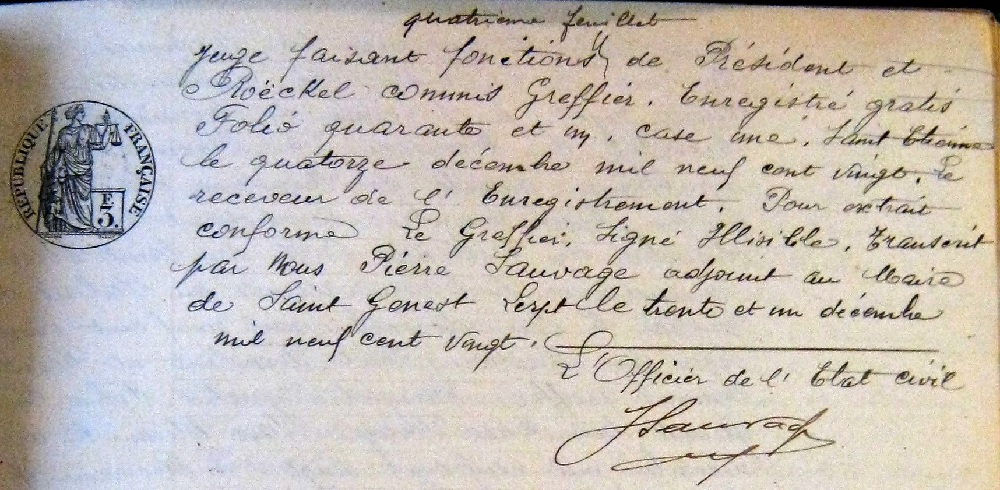 quatrième feuillet
juge faisant fonctions de Président et
Roëckel commis Greffier. Enregistré gratis
Folio quarante et un, case une. Saint Etienne
le quatorze décembre mil neuf cent vingt. Le
receveur de l' Enregistrement. Pour extrait
conforme Le Greffier, Signé Illisible. Transcrit
par Nous Pierre Sauvage adjoint au Maire
de Saint Genest Lerpt le trente et un décembre
mil neuf cent vingt.
L'Officier de l' Etat civil
Sauvage
RÉPUBLIQUE FRANÇAISE
F
3.